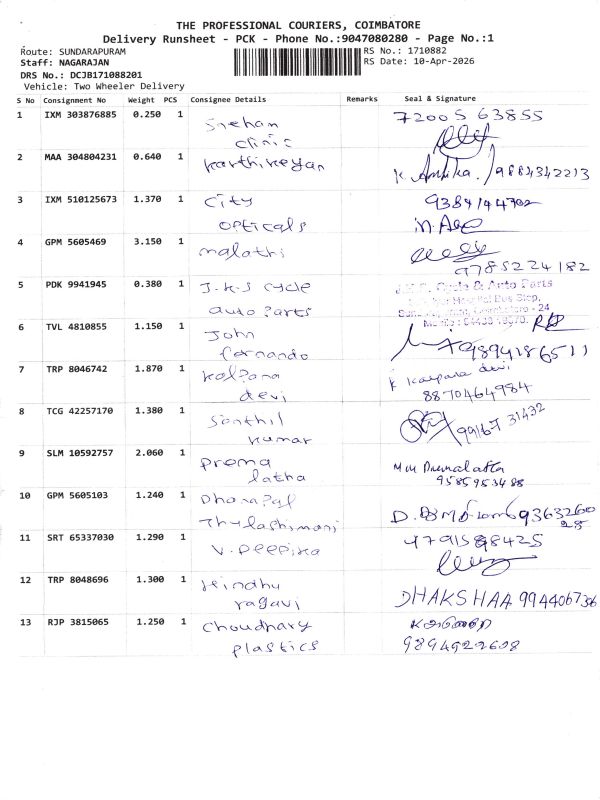 THE PROFESSIONAL COURIERS, COIMBATORE
Delivery Runsheet - PCK - Phone No.:9047080280 - Page No.:1
Route: SUNDARAPURAM
RS No.: 1710882
Staff: NAGARAJAN
RS Date: 10-Apr-2026
DRS No.: DCJB171088201
Vehicle: Two Wheeler Delivery
S No Consignment No Weight PCS Consignee Details Remarks Seal & Signature
1 IXM 303876885 0.250 1 Snehan 72005 63855
clinic
2 MAA 304804231 0.640 1 Karthikeyan
K. /9884342213
3 IXM 510125673 1.370 1 City
opticals
4 GPM 5605469 3.150 1 malathi
9785224182
5 PDK 9941945 0.380 1 J.K.S cycle Cycle & Auto Parts
auto parts
6 TVL 4810855 1.150 1 John
fernando 9894186511
7 TRP 8046742 1.870 1 kalpana devi
devi 8870464984
8 TCG 42257170 1.380 1 Senthil 99167 31432
kumar
9 SLM 10592757 2.060 1 prema Premalatha
latha 9585953488
10 GPM 5605103 1.240 1 Dhanapal
Thulashimani
11 SRT 65337030 1.290 1 V. Deepika
12 TRP 8048696 1.300 1 Hindhu
ragavi DHAKSHAA 9944067306
13 RJP 3815065 1.250 1 Choudhary
plastics